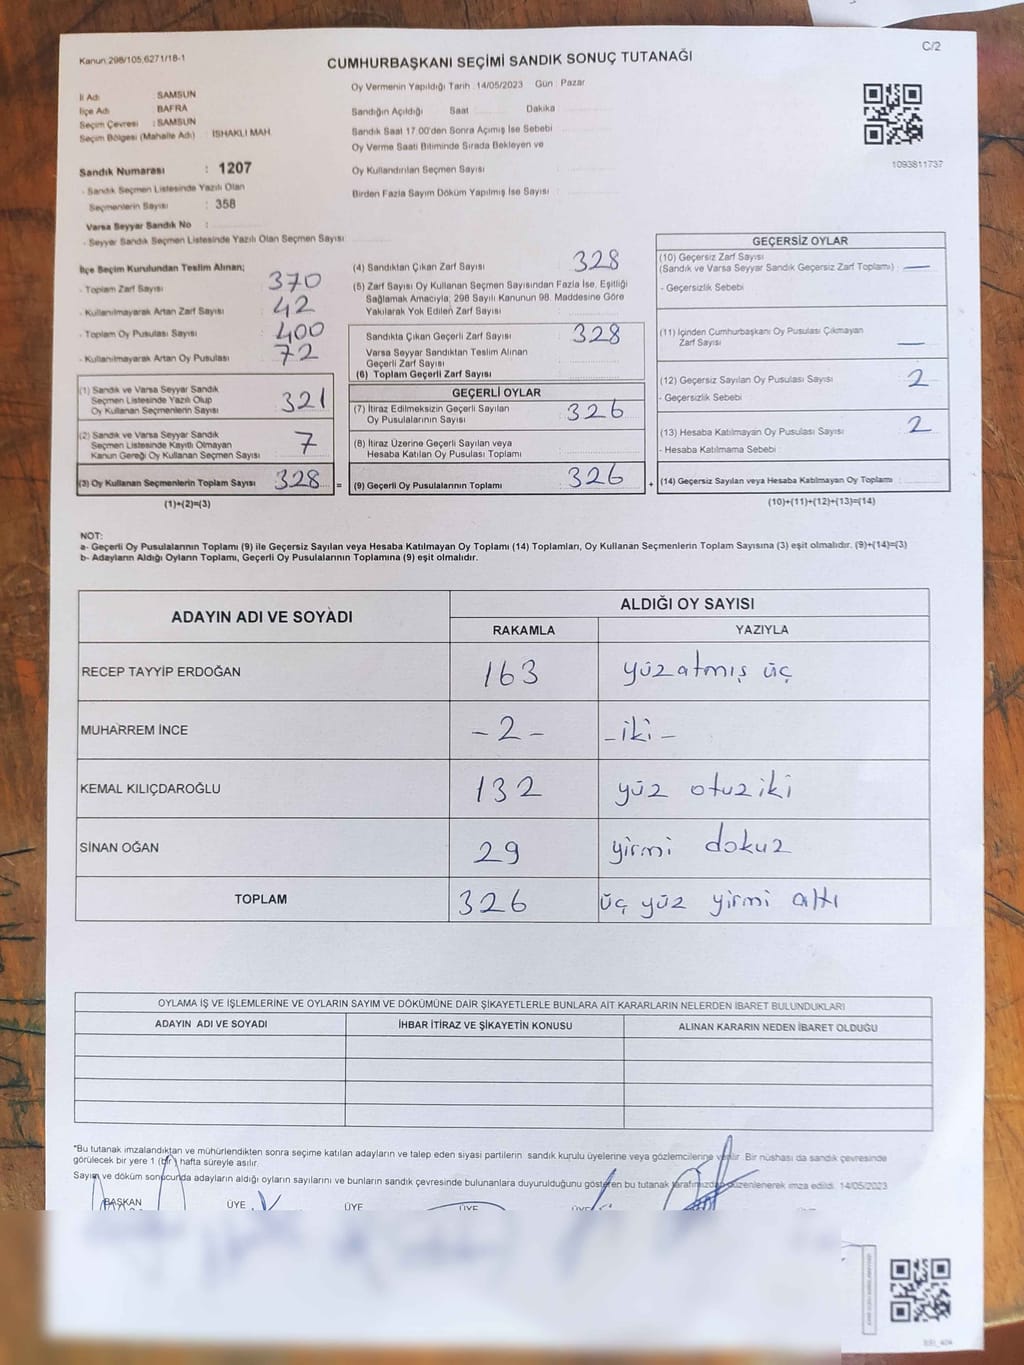 Kanun:298/105,6271/18-1
C/2
CUMHURBAŞKANI SEÇİMİ SANDIK SONUÇ TUTANAĞI
İl Adı SAMSUN
İlçe Adı BAFRA
Seçim Çevresi : SAMSUN
Seçim Bölgesi (Mahalle Adı) : İSHAKLI MAH.
Sandık Numarası : 1207
- Sandık Seçmen Listesinde Yazılı Olan
Seçmenlerin Sayısı : 358
Varsa Seyyar Sandık No :
- Seyyar Sandık Seçmen Listesinde Yazılı Olan Seçmen Sayısı
Oy Vermenin Yapıldığı Tarih : 14/05/2023 Gün : Pazar
Sandığın Açıldığı Saat Dakika
Sandık Saat 17.00'den Sonra Açımış İse Sebebi
Oy Verme Saati Bitiminde Sırada Bekleyen ve
Oy Kullandırılan Seçmen Sayısı
Birden Fazla Sayım Döküm Yapılmış İse Sayısı
1093811737
İlçe Seçim Kurulundan Teslim Alınan;
- Toplam Zarf Sayısı 370
- Kullanılmayarak Artan Zarf Sayısı 42
- Toplam Oy Pusulası Sayısı 400
- Kullanılmayarak Artan Oy Pusulası 72
(1) Sandık ve Varsa Seyyar Sandık
Seçmen Listesinde Yazılı Olup
Oy Kullanan Seçmenlerin Sayısı 321
(2) Sandık ve Varsa Seyyar Sandık
Seçmen Listesinde Kayıtlı Olmayan
Kanun Gereği Oy Kullanan Seçmen Sayısı 7
(3) Oy Kullanan Seçmenlerin Toplam Sayısı 328 =
(1)+(2)=(3)
(4) Sandıktan Çıkan Zarf Sayısı 328
(5) Zarf Sayısı Oy Kullanan Seçmen Sayısından Fazla İse, Eşitliği
Sağlamak Amacıyla, 298 Sayılı Kanunun 98. Maddesine Göre
Yakılarak Yok Edilen Zarf Sayısı
Sandıkta Çıkan Geçerli Zarf Sayısı 328
Varsa Seyyar Sandıktan Teslim Alınan
Geçerli Zarf Sayısı
(6) Toplam Geçerli Zarf Sayısı
GEÇERLİ OYLAR
(7) İtiraz Edilmeksizin Geçerli Sayılan
Oy Pusulalarının Sayısı 326
(8) İtiraz Üzerine Geçerli Sayılan veya
Hesaba Katılan Oy Pusulası Toplamı
(9) Geçerli Oy Pusulalarının Toplamı 326 +
GEÇERSİZ OYLAR
(10) Geçersiz Zarf Sayısı
(Sandık ve Varsa Seyyar Sandık Geçersiz Zarf Toplamı) : —
- Geçersizlik Sebebi
(11) İçinden Cumhurbaşkanı Oy Pusulası Çıkmayan
Zarf Sayısı —
(12) Geçersiz Sayılan Oy Pusulası Sayısı 2
- Geçersizlik Sebebi
(13) Hesaba Katılmayan Oy Pusulası Sayısı 2
- Hesaba Katılmama Sebebi
(14) Geçersiz Sayılan veya Hesaba Katılmayan Oy Toplamı
(10)+(11)+(12)+(13)=(14)
NOT:
a- Geçerli Oy Pusulalarının Toplamı (9) ile Geçersiz Sayılan veya Hesaba Katılmayan Oy Toplamı (14) Toplamları, Oy Kullanan Seçmenlerin Toplam Sayısına (3) eşit olmalıdır. (9)+(14)=(3)
b- Adayların Aldığı Oyların Toplamı, Geçerli Oy Pusulalarının Toplamına (9) eşit olmalıdır.
ADAYIN ADI VE SOYADI ALDIĞI OY SAYISI
RAKAMLA YAZIYLA
RECEP TAYYİP ERDOĞAN 163 yüz atmış üç
MUHARREM İNCE -2- -iki-
KEMAL KILIÇDAROĞLU 132 yüz otuziki
SİNAN OĞAN 29 yirmi dokuz
TOPLAM 326 üç yüz yirmi altı
OYLAMA İŞ VE İŞLEMLERİNE VE OYLARIN SAYIM VE DÖKÜMÜNE DAİR ŞİKAYETLERLE BUNLARA AİT KARARLARIN NELERDEN İBARET BULUNDUKLARI
ADAYIN ADI VE SOYADI İHBAR İTİRAZ VE ŞİKAYETİN KONUSU ALINAN KARARIN NEDEN İBARET OLDUĞU
*Bu tutanak imzalandıktan ve mühürlendikten sonra seçime katılan adayların ve talep eden siyasi partilerin sandık kurulu üyelerine veya gözlemcilerine verilir. Bir nüshası da sandık çevresinde
görülecek bir yere 1 (bir) hafta süreyle asılır.
Sayım ve döküm sonucunda adayların aldığı oyların sayılarını ve bunların sandık çevresinde bulunanlara duyurulduğunu gösteren bu tutanak tarafımızdan düzenlenerek imza edildi. 14/05/2023
BAŞKAN ÜYE ÜYE ÜYE